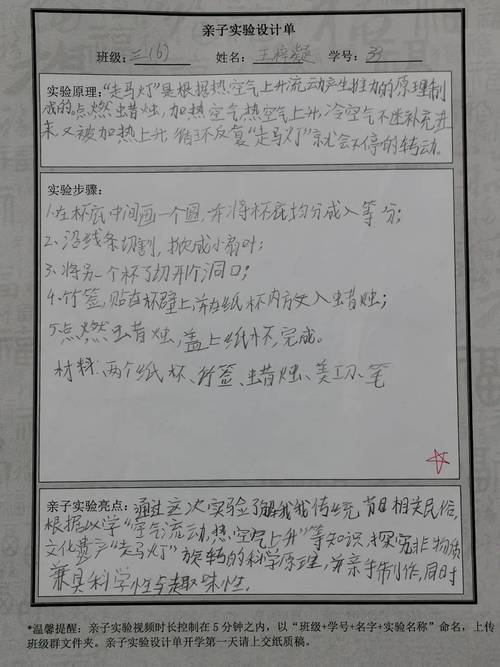 亲子实验设计单
班级：三（6） 姓名：王梓 学号：33
实验原理："走马灯"是根据热空气上升流动产生推力的原理制
成的。点燃蜡烛，加热空气，热空气上升，冷空气不断补充进
来又被加热上升，循环反复"走马灯"就会不停的转动。
实验步骤：
1、在杯底中间画一个圆，并将杯底均分成八等分；
2、沿线条切割，掀成小扇叶；
3、将另一个杯子切开个洞口；
4、竹签，贴在杯壁上，并在纸杯内放入蜡烛；
5、点燃蜡烛，盖上纸杯，完成。
材料：两个纸杯、竹签、蜡烛、美工刀、笔
亲子实验亮点：通过这次实验了解我我传统节日相关民俗，
根据以学"空气流动，热空气上升"等知识，探究非物质
文化遗产"走马灯"旋转的科学原理，并亲手制作，同时
兼具科学性与趣味性。
*温馨提醒：亲子实验视频时长控制在 5 分钟之内，以"班级+学号+名字+实验名称"命名，上传
班级群文件夹。亲子实验设计单开学第一天请上交纸质稿。